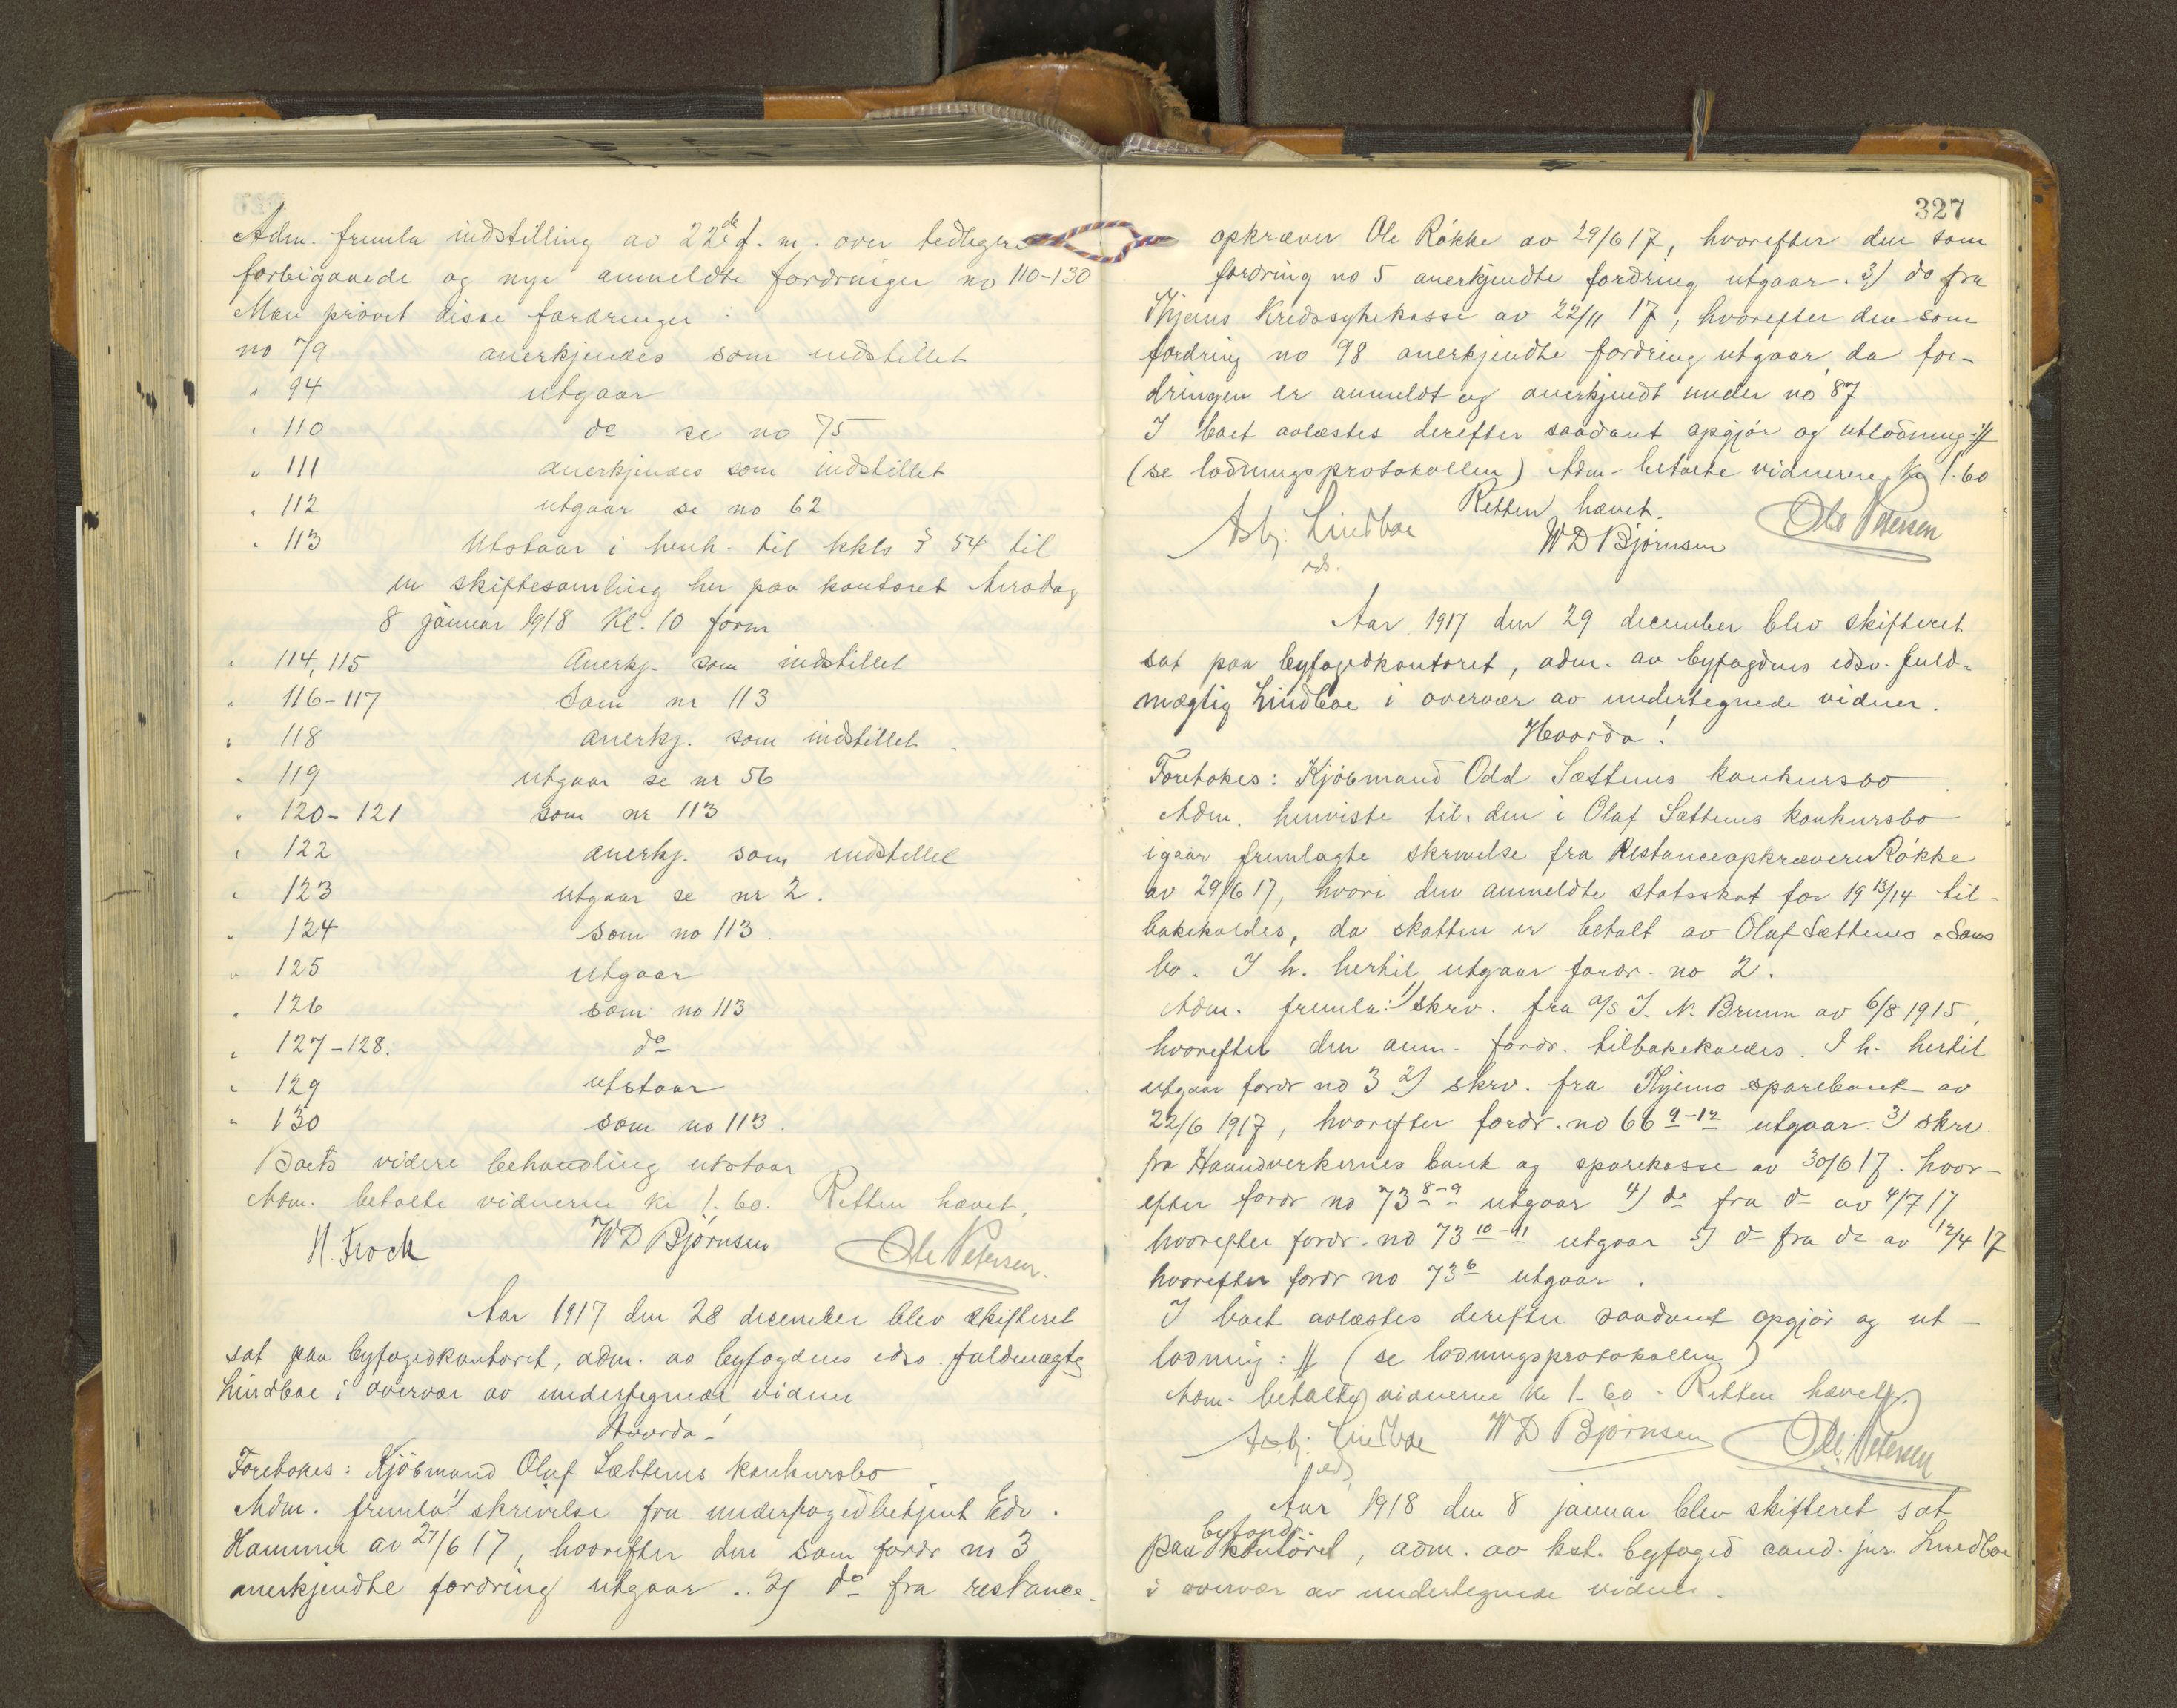 Adm. fremla indstilling av 22de f. m. over tidligere
forbigaaede og nye anmeldte fordringer no 110-130
Man prövet disse fordringer :
no 79 anerkjendes som indstillet
" 94 utgaar
" 110 do se no 75
" 111 anerkjendes som indstillet
" 112 utgaar se no 62
" 113 Utstaar i henh. til kkls § 54 til
en skiftesamling her paa kontoret tirsdag
8 januar 1918 kl. 10 form
" 114, 115 Anerkj. som indstillet
" 116-117 Som nr 113
" 118 anerkj. som indstillet.
" 119 utgaar se nr 56
" 120-121 som nr 113
" 122 anerkj. som indstillet
" 123 utgaar se nr 2.
" 124 som no 113.
" 125 utgaar
" 126 som no 113
" 127-128. do
" 129 utstaar
" 130 som no 113.
Boets videre behandling utstaar
Adm. betalte vidnerne kr 1.60. Retten hævet.
H. Frock WD Björnsen Ole Petersen.
Aar 1917 den 28 december blev skifteret
sat paa byfogedkontoret, adm. av byfogdens edsv. fuldmægtig
Lindboe i overvær av undertegnede vidner
Hvorda!
Foretokes: Kjöbmand Olaf Sættems konkursbo
Adm. fremla: 1) skrivelse fra underfogedbetjent Edv.
Hammer av 27/6 17, hvorefter den som fordr no 3
anerkjendte fordring utgaar.. 2) do fra restance-
327
opkræver Ole Rökke av 29/6 17, hvorefter den som
fordring no 5 anerkjendte fordring utgaar. 3) do fra
Thjems Kredssykekasse av 22/11 17, hvorefter den som
fordring no 98 anerkjendte fordring utgaar, da for-
dringen er anmeldt og anerkjendt under no 87
I boet avlæstes derefter saadant opgjör og utlodning :#
(se lodningsprotokollen) Adm. betalte vidnerne kr 1.60
Retten hævet.
Asbj. Lindboe WD Björnsen Ole Petersen
eds.
Aar 1917 den 29 december blev skifteret
sat paa byfogedkontoret, adm. av byfogdens edsv. fuld-
mægtig Lindboe i overvær av undertegnede vidner.
Hvorda!
Foretokes: Kjöbmand Odd Sættems konkursbo.
Adm. henviste til den i Olaf Sættems konkursbo
igaar fremlagte skrivelse fra Restanceopkræver Rökke
av 29/6 17, hvori den anmeldte statsskat for 19 13/14 til-
bakekaldes, da skatten er betalt av Olaf Sættems & Söns
bo. I h. hertil utgaar fordr. no 2.
Adm. fremla: 1) skrv. fra A/S I. N. Bruun av 6/8 1915,
hvorefter den anm. fordr. tilbakekaldes. I h. hertil
utgaar fordr no 3 2) skrv. fra Thjems sparebank av
22/6 1917, hvorefter fordr. no 66 9-12 utgaar. 3) skrv.
fra Haandverkernes bank og sparekasse av 30/6 17. hvor-
efter fordr no 73 8-9 utgaar 4) do fra do av 4/7 17
hvorefter fordr. no 73 10-11 utgaar 5) do fra do av 12/4 17
hvorefter fordr no 73 6 utgaar.
I boet avlæstes derefter saadant opgjör og ut-
lodning: # (se lodningsprotokollen)
Adm. betalte vidnerne kr 1.60. Retten hævet
Asbj. Lindboe WD Björnsen Ole Petersen
eds
Aar 1918 den 8 januar blev skifteret sat
paa byfogd-kontoret, adm. av kst. byfoged cand. jur. Lindboe
i overvær av undertegnede vidner.